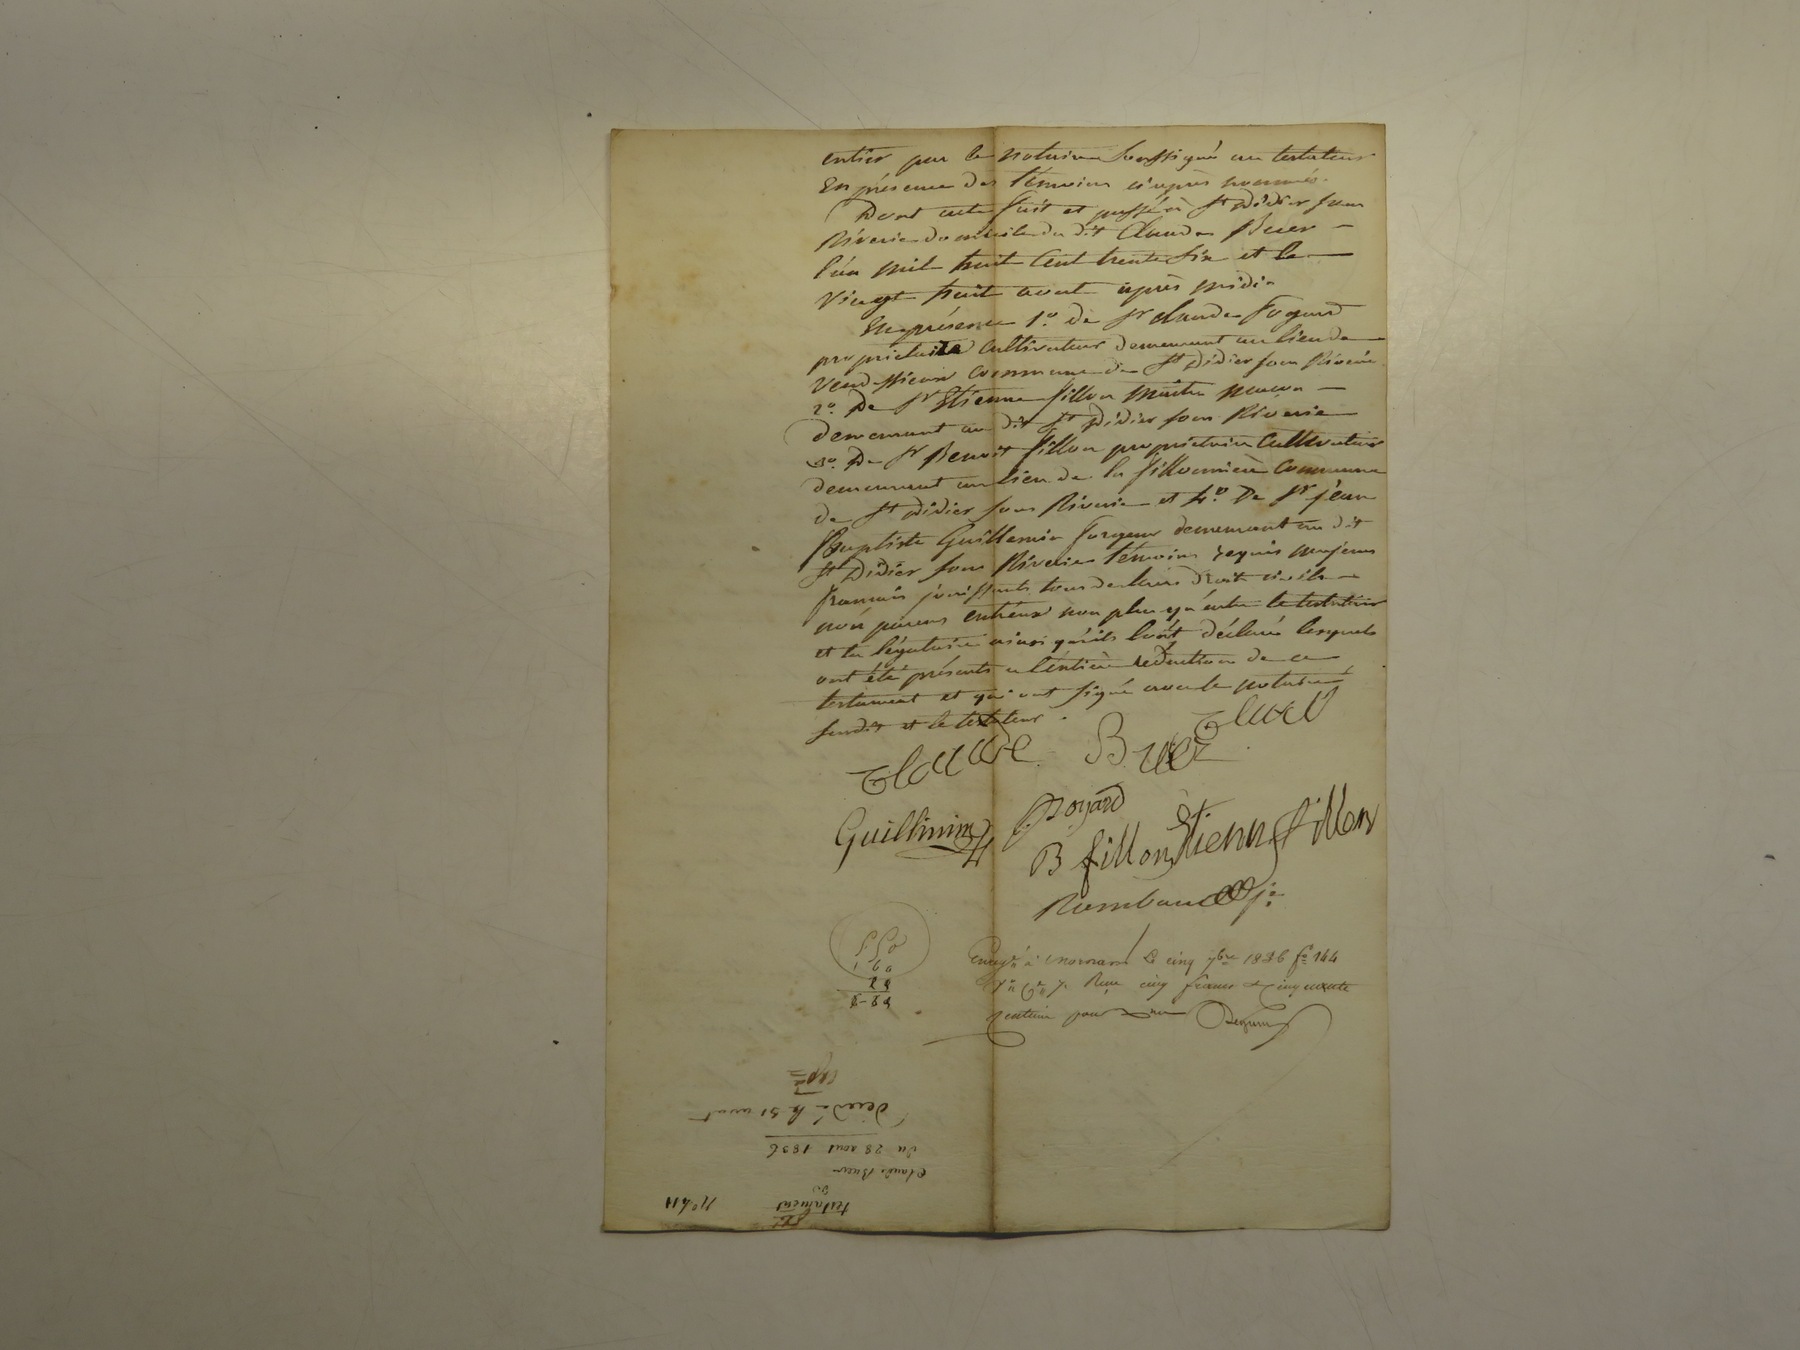 entier par le notaire soussigné au testateur
En présence des témoins ci après nommés.
Dont acte fait et passé à St Didier sous
Riverie domicile du dit Claude Buer
l'an mil huit cent trente six et le
vingt huit aout après midi
En présence 1º. de Sr Claude Fogard
propriétaire cultivateur demeurant au lieu de
commune de St Didier sous Riverie
2º. De Sr Etienne fillon maître maçon
demeurant au dit St Didier sous Riverie
3º. De Sr Benoit fillon propriétaire Cultivateur
demeurant au lieu de la fillonnière Commune
de St Didier sous Riverie et 4º. De Sr jean
Baptiste Guillemin forgeur demeurant au dit
St Didier sous Riverie témoins requis majeurs
francais jouissants tous de leurs droit civils
non parens entreux non plus qu'entre le testateur
et la légataire ainsi qu'ils l'ont déclaré lesquels
ont été présents a l'entière rédaction de ce
testament et qui ont signé avec le notaire
susdit et le testateur.
Claude Buer
Guillimin
B fillon Etienne fillon
Enregtré à mornant le cinq 7bre 1836 fº 144
Reçu cinq francs cinquante
centime pour
Nº 411
testament
de
Claude Buer
du 28 aout 1836
Décédé le 31 aout
expée